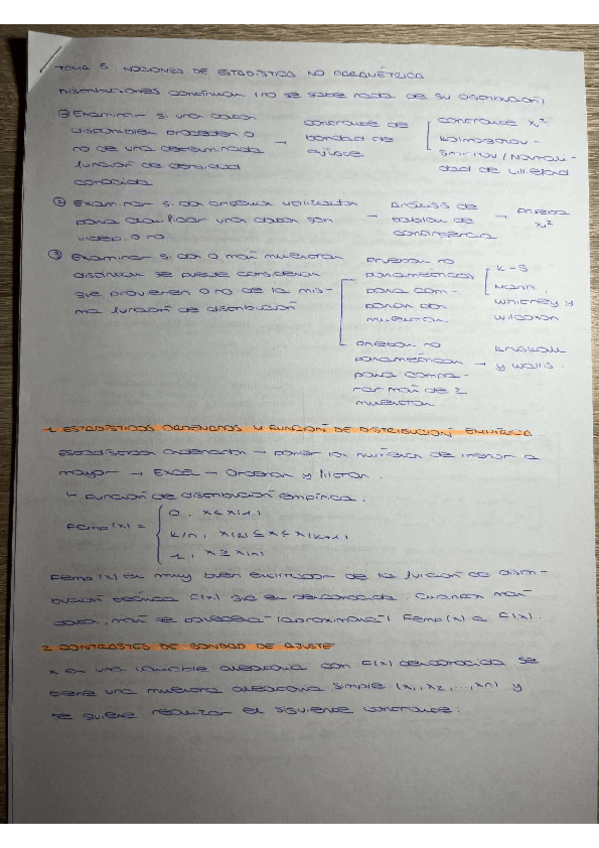 TEMA 5. NOCIONES DE ESTADÍSTICA NO PARAMÉTRICA
DISTRIBUCIONES continuas (no se sabe nada de su distribución)
① Examinar si unos datos
disponibles proceden o
no de una determinada
función de densidad
conocida
→ contraste de
bondad de
ajuste
contraste X²
Kolmogorov-
Smirnov / Normali-
dad de Lilliefors
② Examinar si dos criterios utilizados
para clasificar unos datos son
indep. o no
→ Análisis de
tablas de
contingencia
→ prueba
X²
③ Examinar si dos o más muestras
distintas se puede considerar
que provienen o no de la mis-
ma función de distribución
pruebas no
paramétricas
para com-
parar dos
muestras
K-S
Mann,
Whitney y
Wilcoxon
pruebas no
paramétricas
para compa-
rar más de 2
muestras
→ Kruskall
y Wallis.
1. ESTADÍSTICOS ORDENADOS Y FUNCIÓN DE DISTRIBUCIÓN EMPÍRICA
Estadísticos ordenados → poner los números de menor a
mayor → EXCEL → Ordenar y filtrar.
↳ Función de distribución empírica:
Femp(x) =
0, x<x(1)
k/n, x(k)≤x≤x(k+1)
1, x≥x(n)
Femp(x) es muy buen estimador de la función de distri-
bución teórica F(x) si es desconocida. Cuantos más
datos, más se parecerá (aproximará) Femp(x) a F(x).
2. CONTRASTES DE BONDAD DE AJUSTE
x es una variable aleatoria con F(x) desconocida se
tiene una muestra aleatoria simple (x1, x2, ..., xn) y
se quiere realizar el siguiente contraste: